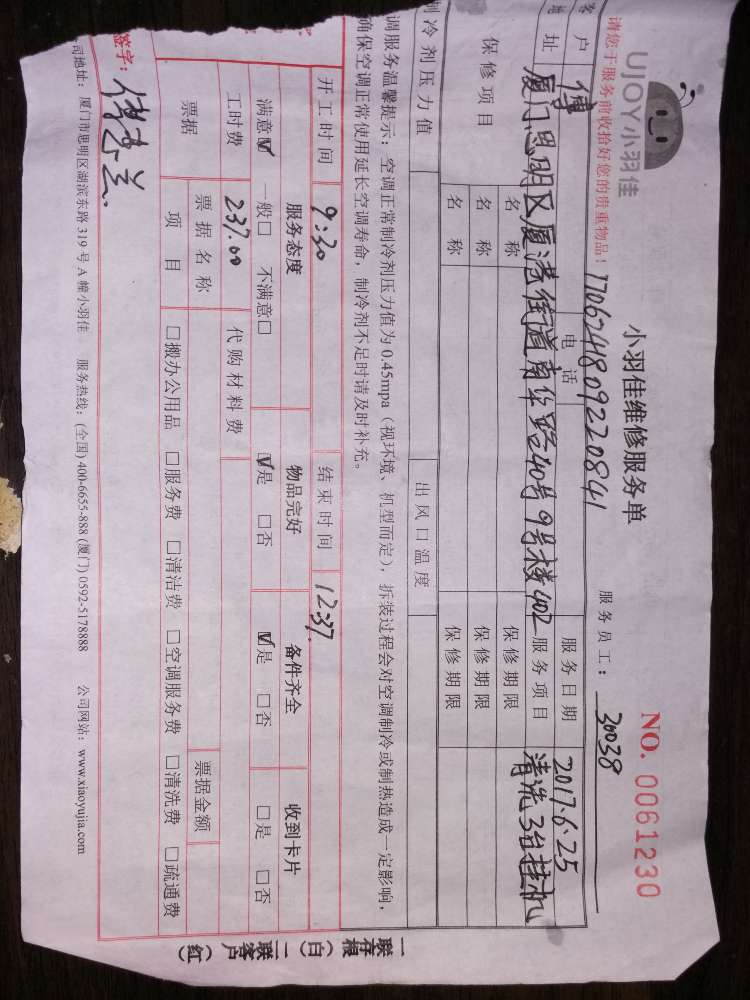 UJOY小羽佳
小羽佳维修服务单
NO. 0061230
请您于服务前收拾好您的贵重物品!
17062418092220841
服务员工: 30038
客户 傅 电话 服务日期 2017.6.25
地址 厦门思明区厦港街道南华路40号9号楼402 服务项目 清洗3台挂机
保修项目 名称 保修期限
名称 保修期限
名称 保修期限
制冷剂压力值 出风口温度
调服务温馨提示:空调正常制冷剂压力值为0.45mpa(视环境、机型而定),拆装过程会对空调制冷或制热造成一定影响,
确保空调正常使用延长空调寿命,制冷剂不足时请及时补充。
开工时间 9:30 结束时间 12:37.
服务态度 物品完好 备件齐全 收到卡片
满意☑ 一般□ 不满意□ ☑是 □否 ☑是 □否 □是 □否
工时费 237.00 代购材料费
票据 票据名称 票据金额
项目 □搬办公用品 □服务费 □清洁费 □空调服务费 □清洗费 □疏通费
签字:
司地址:厦门市思明区湖滨东路319号A幢小羽佳 服务热线:(全国)400-6655-888 (厦门)0592-5178888 公司网站:www.xiaoyujia.com
一联存根(白) 二联客户(红)